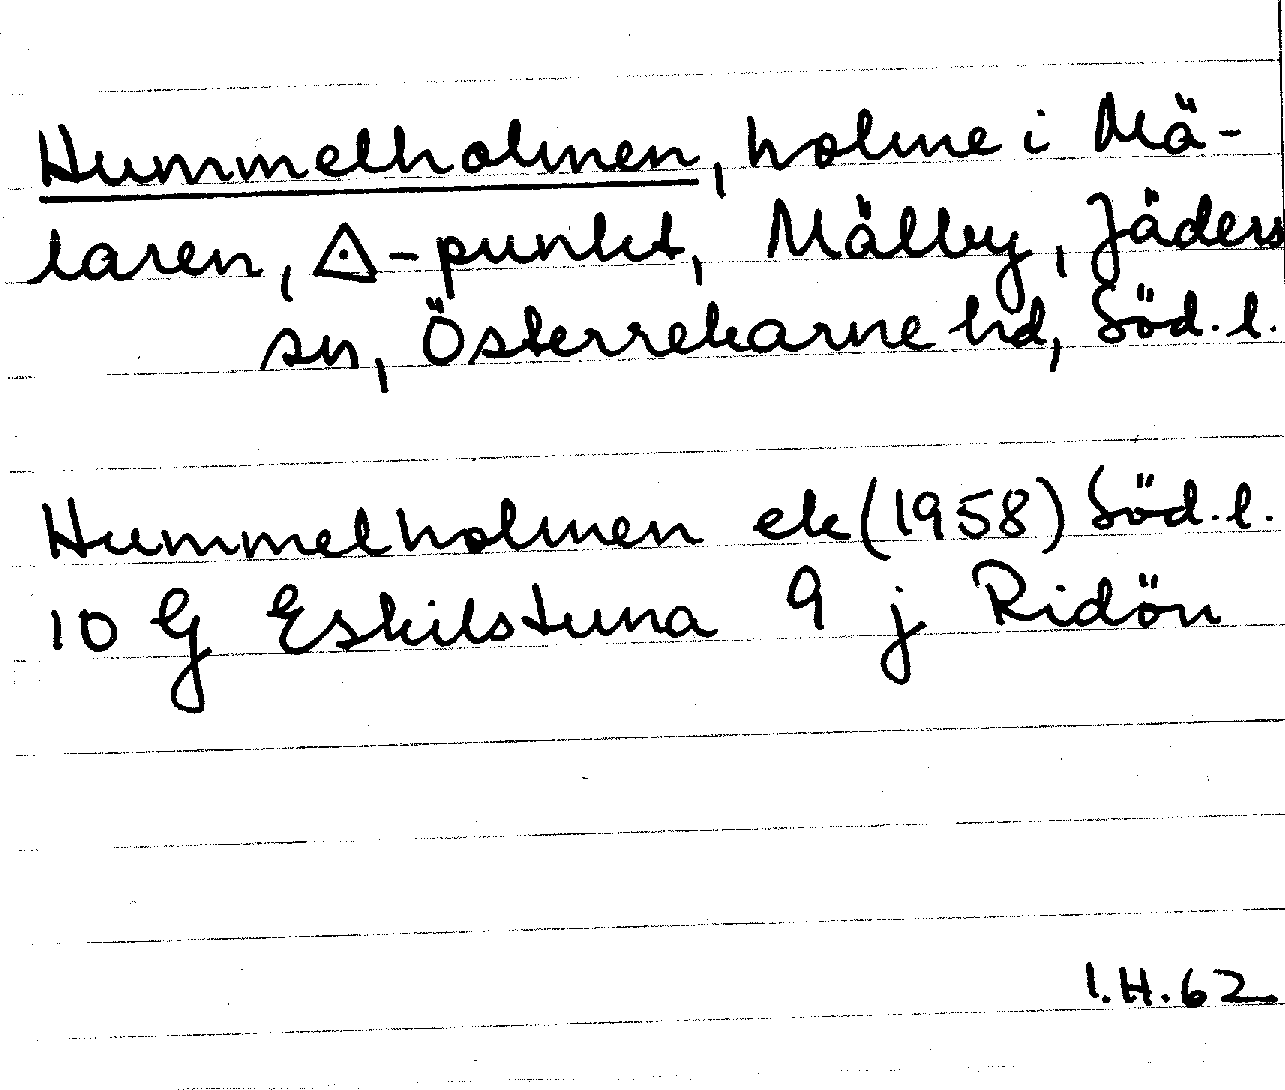 Hummelholmen, holme i Mä-
laren, ◬-punkt, Mälby, Jäders
sn, Österrekarne hd, Söd. l.
Hummelholmen ek (1958) Söd. l.
10 G Eskilstuna 9 j Ridön
I.H. 62